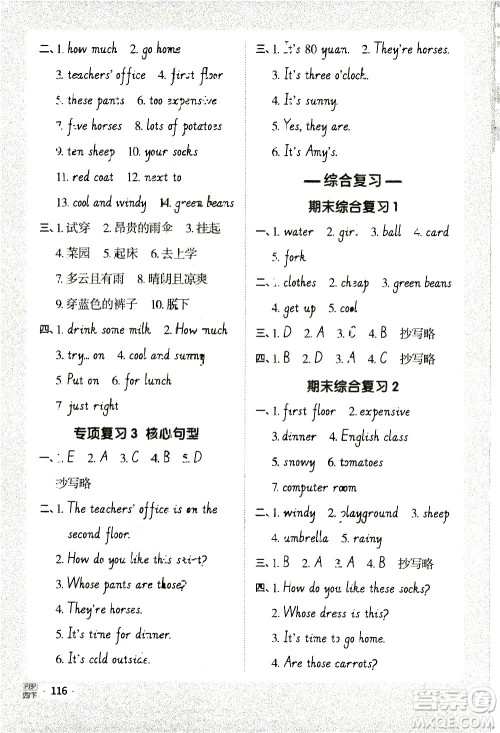 二、1. how much 2. go home
3. teachers' office 4. first floor
5. these pants 6. too expensive
7. five horses 8. lots of potatoes
9. ten sheep 10. your socks
11. red coat 12. next to
13. cool and windy 14. green beans
三、1. 试穿 2. 昂贵的雨伞 3. 挂起
4. 菜园 5. 起床 6. 去上学
7. 多云且有雨 8. 晴朗且凉爽
9. 穿蓝色的裤子 10. 脱下
四、1. drink some milk 2. How much
3. try... on 4. cool and sunny
5. Put on 6. for lunch
7. just right
专项复习 3 核心句型
一、1. E 2. A 3. C 4. B 5. D
抄写略
二、1. The teachers' office is on the
second floor.
2. How do you like this skirt?
3. Whose pants are those?
4. They're horses.
5. It's time for dinner.
6. It's cold outside.
三、1. It's 80 yuan. 2. They're horses.
3. It's three o'clock.
4. It's sunny.
5. Yes, they are.
6. It's Amy's.
综合复习
期末综合复习 1
一、1. water 2. girl 3. ball 4. card
5. fork
二、1. clothes 2. cheap 3. green beans
4. get up 5. cool
三、1. D 2. A 3. C 4. B 抄写略
四、1. C 2. A 3. D 4. B 抄写略
期末综合复习 2
一、1. first floor 2. expensive
3. dinner 4. English class
5. snowy 6. tomatoes
7. computer room
二、1. windy 2. playground 3. sheep
4. umbrella 5. rainy
三、1. B 2. A 3. C 4. B 抄写略
四、1. How do you like these socks?
2. Whose dress is this?
3. It's time to go home.
4. Are those carrots?
PEP
四下
116
作业精灵